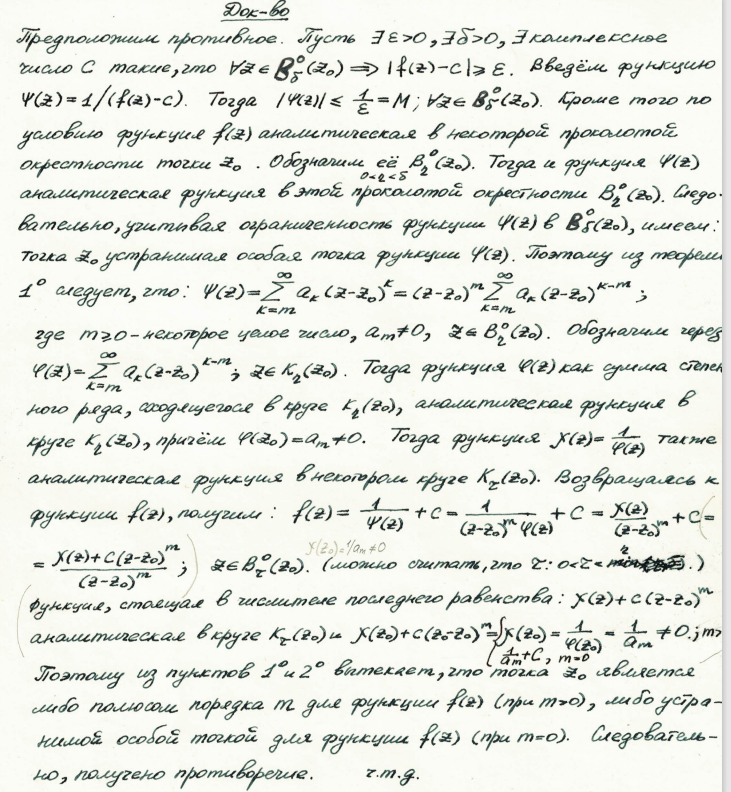 Док-во
Предположим противное. Пусть ∃ε>0, ∃δ>0, ∃ комплексное
число C такие, что ∀z∈B°_δ(z₀) ⟹ |f(z)-c|⩾ε. Введём функцию
Ψ(z)=1/(f(z)-c). Тогда |Ψ(z)|≤ 1/ε = M; ∀z∈B°_δ(z₀). Кроме того по
условию функция f(z) аналитическая в некоторой проколотой
окрестности точки z₀. Обозначим её B°_η(z₀). Тогда и функция Ψ(z)
0<η<δ
аналитическая функция в этой проколотой окрестности B°_η(z₀). Следо-
вательно, учитывая ограниченность функции Ψ(z) в B°_δ(z₀), имеем:
точка z₀ устранимая особая точка функции Ψ(z). Поэтому из теорем
1° следует, что: Ψ(z)=∑_{k=m}^{∞} a_k(z-z₀)^k=(z-z₀)^m ∑_{k=m}^{∞} a_k(z-z₀)^{k-m};
где m⩾0 – некоторое целое число, a_m≠0, z∈B°_η(z₀). Обозначим через
φ(z)=∑_{k=m}^{∞} a_k(z-z₀)^{k-m}; z∈K_η(z₀). Тогда функция φ(z) как сумма степен
ного ряда, сходящегося в круге K_η(z₀), аналитическая функция в
круге K_η(z₀), причём φ(z₀)=a_m≠0. Тогда функция χ(z)= 1/φ(z) также
аналитическая функция в некотором круге K_τ(z₀). Возвращаясь к
функции f(z), получим: f(z)= 1/Ψ(z) +c= 1/((z-z₀)^m φ(z)) + C = χ(z)/(z-z₀)^m +C (=
χ(z₀)=1/a_m≠0
= (χ(z)+C(z-z₀)^m)/(z-z₀)^m ;) z∈B°_τ(z₀). (можно считать, что τ: 0<τ<η.)
Функция, стоящая в числителе последнего равенства: χ(z)+c(z-z₀)^m
аналитическая в круге K_τ(z₀) и χ(z₀)+c(z₀-z₀)^m={χ(z₀)= 1/φ(z₀) = 1/a_m ≠0.; m>
1/a_m+C, m=0
Поэтому из пунктов 1° и 2° вытекает, что точка z₀ является
либо полюсом порядка m для функции f(z) (при m>0), либо устра-
нимой особой точкой для функции f(z) (при m=0). Следователь-
но, получено противоречие. ч.т.д.